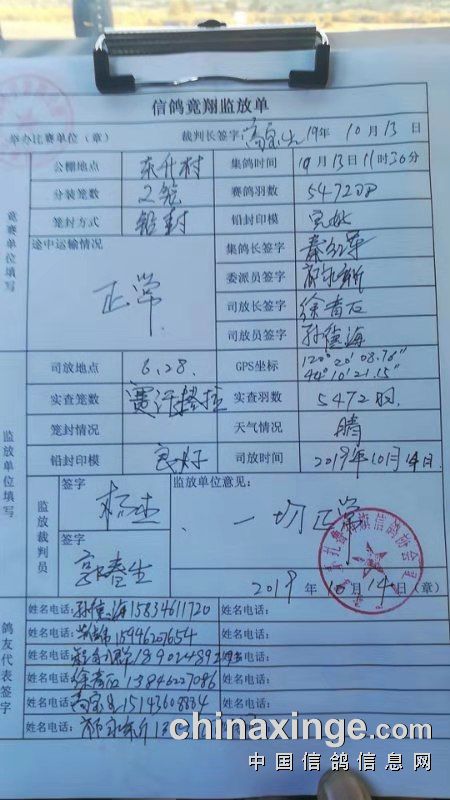 信鸽竟翔监放单
举办比赛单位（章） 裁判长签字: 19年 10月 13日
竟赛单位填写
公棚地点 东升村 集鸽时间 10月13日11时36分
分装笼数 2笼 赛鸽羽数 5472羽
笼封方式 铅封 铅封印模 完好
途中运输情况 正常
集鸽长签字 秦
委派员签字
司放长签字 徐春石
司放员签字 孙德海
监放单位填写
司放地点 6.28. GPS坐标 120°20'08.76" 44°10'21.15"
实查笼数 赛汗塔拉 实查羽数 5472羽.
笼封情况 天气情况 晴
铅封印模 良好 司放时间 2019年10月14日.
监放裁判员
签字 杨杰
签字 郭春生
监放单位意见:
一切正常
2019年 10月 14日 (章)
鸽友代表签字
姓名电话: 孙德海15834611720 姓名电话:
姓名电话: 15946207654 姓名电话:
姓名电话: 姓名电话:
姓名电话: 徐春石 13846227086 姓名电话:
姓名电话: 15143608834 姓名电话:
姓名电话: 姓名电话:
chinaxinge.com
中国信鸽信息网